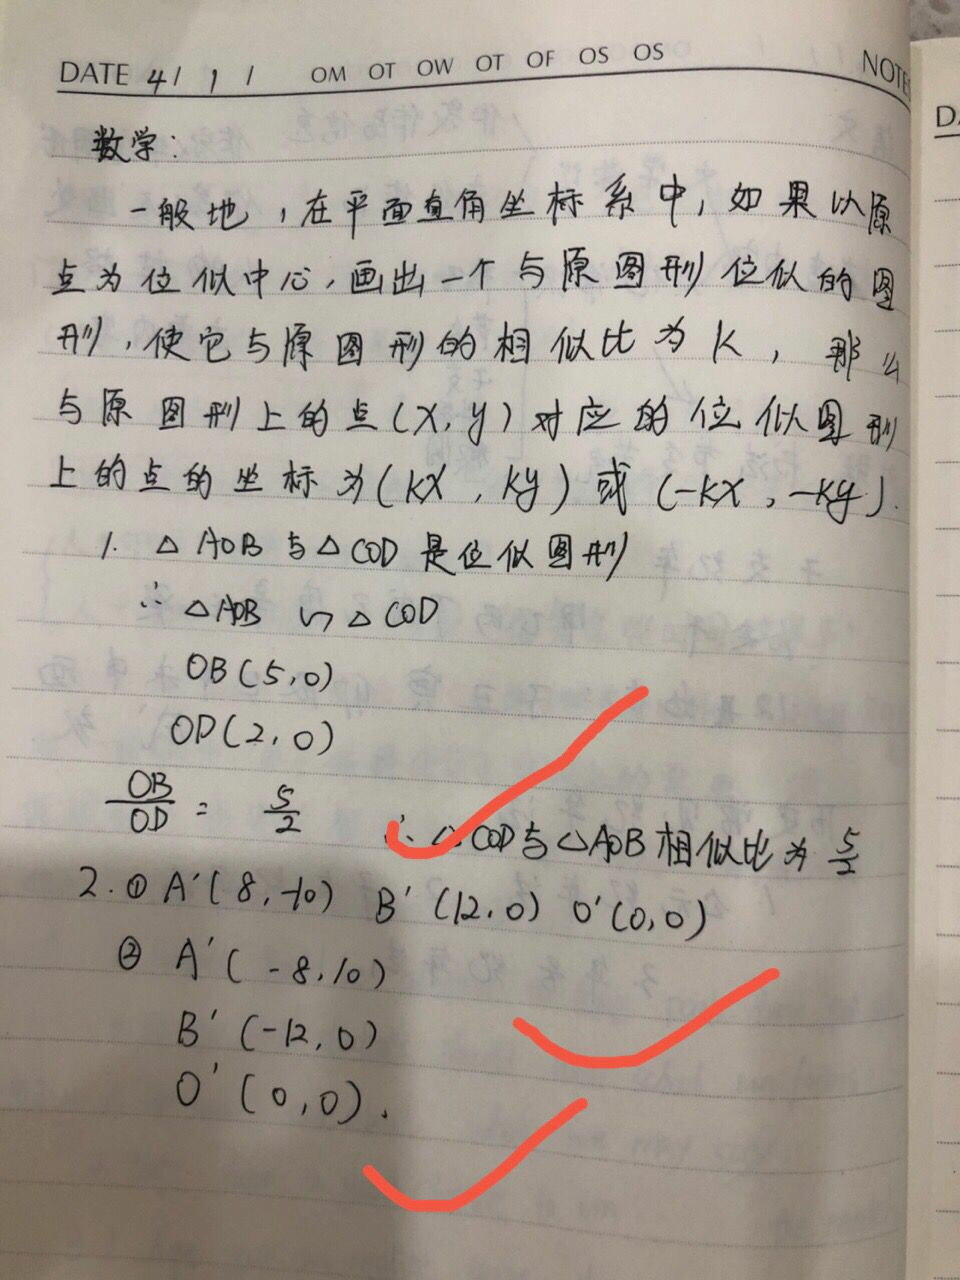 DATE 4/ 1 / OM OT OW OT OF OS OS NOTE
数学:
一般地,在平面直角坐标系中,如果以原
点为位似中心,画出一个与原图形位似的图
形,使它与原图形的相似比为k,那么
与原图形上的点(x,y)对应的位似图形
上的点的坐标为(kx,ky)或(-kx,-ky).
1. △AOB与△COD是位似图形
∴△AOB∽△COD
OB(5,0)
OD(2,0)
OB/OD = 5/2 ∴△COD与△AOB相似比为5/2
2.① A′(8,-10) B′(12,0) O′(0,0)
② A′(-8,10)
B′(-12,0)
O′(0,0).